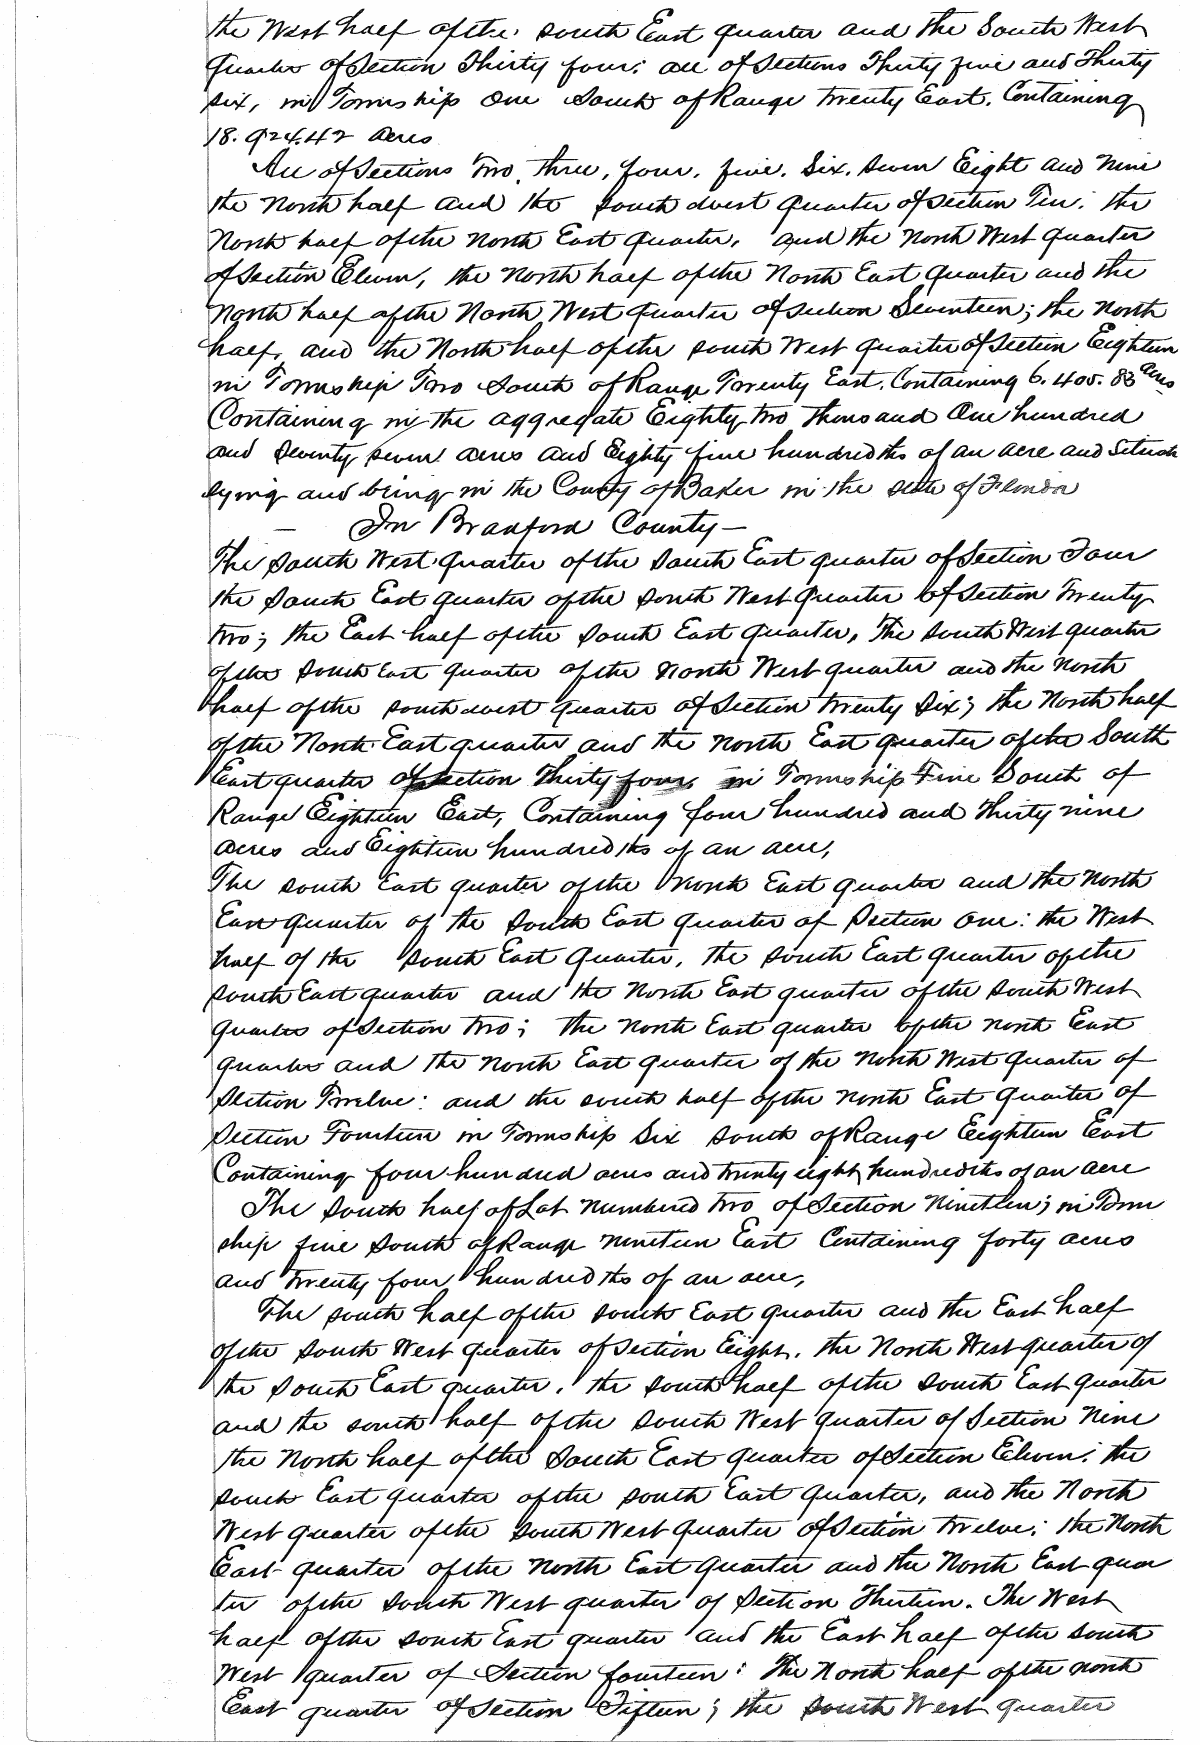 the West half of the South East quarter and the South West
Quarter of Section Thirty four; all of Sections Thirty five and Thirty
six, in Township One South of Range twenty East. Containing
18.924.42 acres
All of Sections Two, three, four, five, Six, Seven Eight and Nine
the North half and the South West quarter of section Ten. the
North half of the North East quarter, and the North West quarter
of Section Eleven, the North half of the North East quarter and the
North half of the North West quarter of section Seventeen; the North
half, and the North half of the South West quarter of Section Eighteen
in Township Two South of Range Twenty East. Containing 6.405.83 acres
Containing in the aggregate Eighty two thousand One hundred
and Seventy seven acres and Eighty five hundredths of an acre and Situate
lying and being in the County of Baker in the State of Florida
— In Bradford County —
The South West quarter of the South East quarter of Section Four
the South East quarter of the South West quarter of Section Twenty
two; the East half of the South East quarter, The South West quarter
of the South East quarter of the North West quarter and the North
half of the South West quarter of Section twenty Six; the North half
of the North East quarter and the North East quarter of the South
East quarter of Section Thirty four, in Township Five South of
Range Eighteen East, Containing four hundred and Thirty nine
acres and Eighteen hundredths of an acre,
The South East quarter of the North East quarter and the North
East quarter of the South East quarter of Section One: the West
half of the South East Quarter, the South East quarter of the
South East quarter and the North East quarter of the South West
quarter of Section two; the North East quarter of the North East
quarter and the North East quarter of the North West quarter of
Section Twelve: and the South half of the North East quarter of
Section Fourteen in Township Six South of Range Eighteen East
Containing four hundred acres and twenty eight hundredths of an acre
The South half of Lot numbered two of Section Nineteen; in Town
ship five South of Range nineteen East Containing forty acres
and twenty four hundredths of an acre,
The South half of the South East quarter and the East half
of the South West quarter of Section Eight. the North West quarter of
the South East quarter, the South half of the South East quarter
and the South half of the South West quarter of Section Nine
the North half of the South East quarter of Section Eleven; the
South East quarter of the South East quarter, and the North
West quarter of the South West quarter of Section twelve; the North
East quarter of the North East quarter and the North East quar
ter of the South West quarter of Section Thirteen. The West
half of the South East quarter and the East half of the South
West quarter of Section fourteen: The North half of the North
East quarter of Section Fifteen; the South West quarter